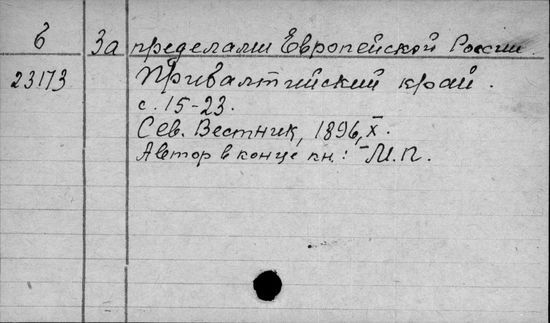 б За пределами Европейской России.
23173 Прибалтийский край.
с. 15-23.
Сев. Вестник, 1896, X.
Автор в конце кн.: М.П.